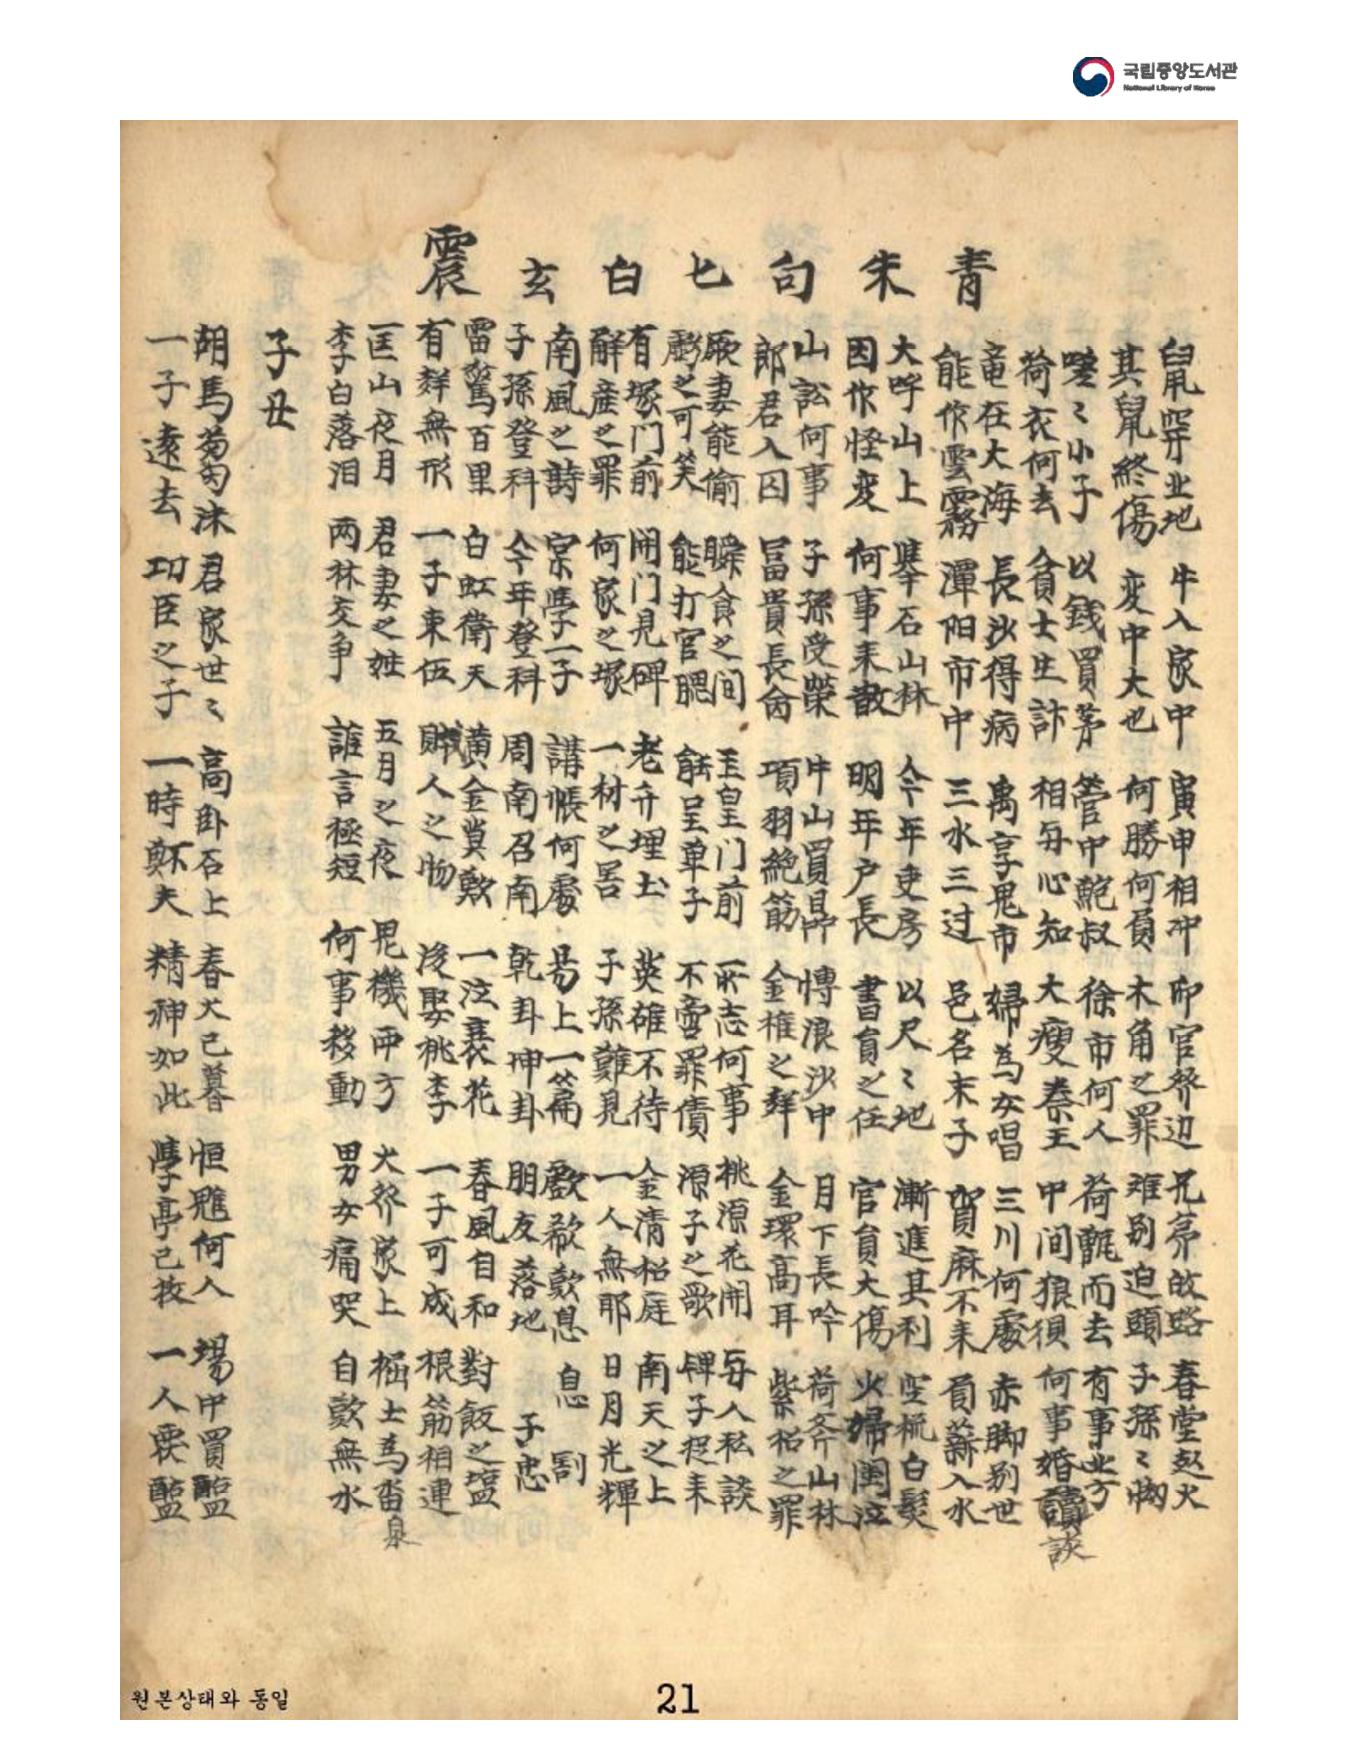 국립중앙도서관
National Library of Korea
鼠穿业地 牛入家中 寅申相冲 卯官祭辺 兄弟故路 春堂赴火
其鼠終傷 変中大也 何勝何負 木角之罪 难别迫頭 子孫〻脚
嗟〻小子 以銭買茅 管中鮑叔 徐市何人 荷甑而去 有事业方
荷衣何去 貧士生訃 相毎心知 大瘦秦王 中间狼狽 何事婚談
竜在大海 長沙得病 禹享鬼市 婦為女唱 三川何處 赤脚别世
青 能作雲霧 潭阳市中 三水三过 邑名末子 賀麻不来 負薪入水
大呼山上 擧石山林 今年吏房 以尺〻地 漸進其利 空梳白髮
朱 因作怪変 何事来散 明年户長 書員之任 官員大傷 火婦闺泣
山訟何事 子孫受榮 牛山買品 博浪沙中 月下長吟 荷斧山林
句 郎君入囚 冨貴長男 項羽絶筋 金椎之群 金環高耳 紫袑之罪
厥妻能偷 瞬食之间 玉皇门前 所志何事 桃源花開 每人私談
七 戱之可笑 能打官腮 能呈单子 不啻罪債 源子之歌 碑子捉来
有塚门前 開门見碑 老弁埋土 英雄不待 金清袑庭 南天之上
白 解産之罪 何家之塚 一村之居 子孫難見 一人無耶 日月光輝
南風之詩 宗學一子 講帳何處 易上一篇 歔欷歎息 息 割
玄 子孫登科 今年登科 周南召南 乾卦坤卦 朋友落地 子忠
雷驚百里 白虹衝天 黄金奠歎 一泣衰花 春風自和 對飯之塩
震 有群無形 一子束伍 賊人之物 浚娶桃李 一子可成 根筋相連
匡山夜月 君妻之姓 五月之夜 鬼機両方 大祭家上 掘土為畓
李白落泪 两林交争 誰言極短 何事移動 男女痛哭 自歎無水
泉
子丑
胡馬匍匐沐 君家世〻 高卦石上 春大已暮 恒魋何人 場中買監
一子遠去 功臣之子 一時鄭夫 精神如此 學亭已拔 一人要監
원본상태와 동일
21